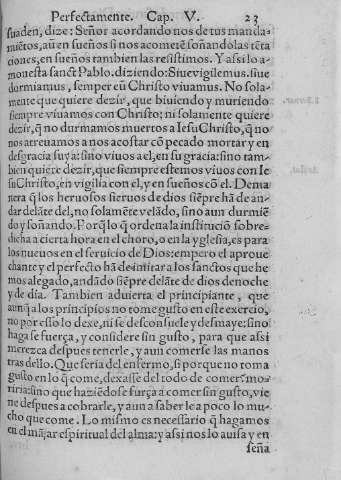 Perfectamente. Cap. V. 23
suaden, dize: Señor acordando nos de tus manda-
miẽtos, aũ en sueños si nos acomete soñandolas tẽta
ciones, en sueños tambien las resistimos. Y assi lo a-
monesta sanct Pablo. diziendo: Siue vigilemus. siue
dormiamus, semper cũ Christo viuamus. No sola-
mente que quiere dezir, que biuiendo y muriendo
siempre viuamos con Christo: ni solamente quiere
dezir, q̃ no durmamos muertos a Iesu Christo, q̃ no
nos atreuamos a nos acostar cõ pecado mortar y en
desgracia suya: sino viuos a el, en su gracia: sino tam-
bien quiere dezir, que siempre estemos viuos con Ie
su Christo, en vigilia con el, y en sueños cõ el. De ma
nera q̃ los heruosos sieruos de dios siẽpre hã de an-
dar delãte del, no solamẽte velãdo, sino aun durmiẽ
do y soñando. Porq̃ lo q̃ ordena la instituciõ sobre-
dicha a cierta hora en el choro, o en la yglesia, es para
los nueuos en el seruicio de Dios: empero el aproue
chante y el perfecto hã de intitar a los sanctos que he
mos alegado, andãdo siẽpre delãte de dios de noche
y de dia. Tambien aduierta el principiante, que
aunq̃ a los principios no tome gusto en este exercio,
no por esso lo dexe, ni se desconsuele y desmaye: sino
haga se fuerça, y considere sin gusto, para que assi
merezca despues tenerle, y aun comerse las manos
tras dello. Que seria del enfermo, si porque no toma
gusto en lo q̃ come, dexasse del todo de comer? mo-
riria: sino que haziẽdo se furça a comer sin gusto, vie
ne despues a cobrarle, y aun a saber le a poco lo mu-
cho que come. Lo mismo es necessario q̃ hagamos
en el mãjar espiritual del alma: y assi nos lo auisa y en
seña